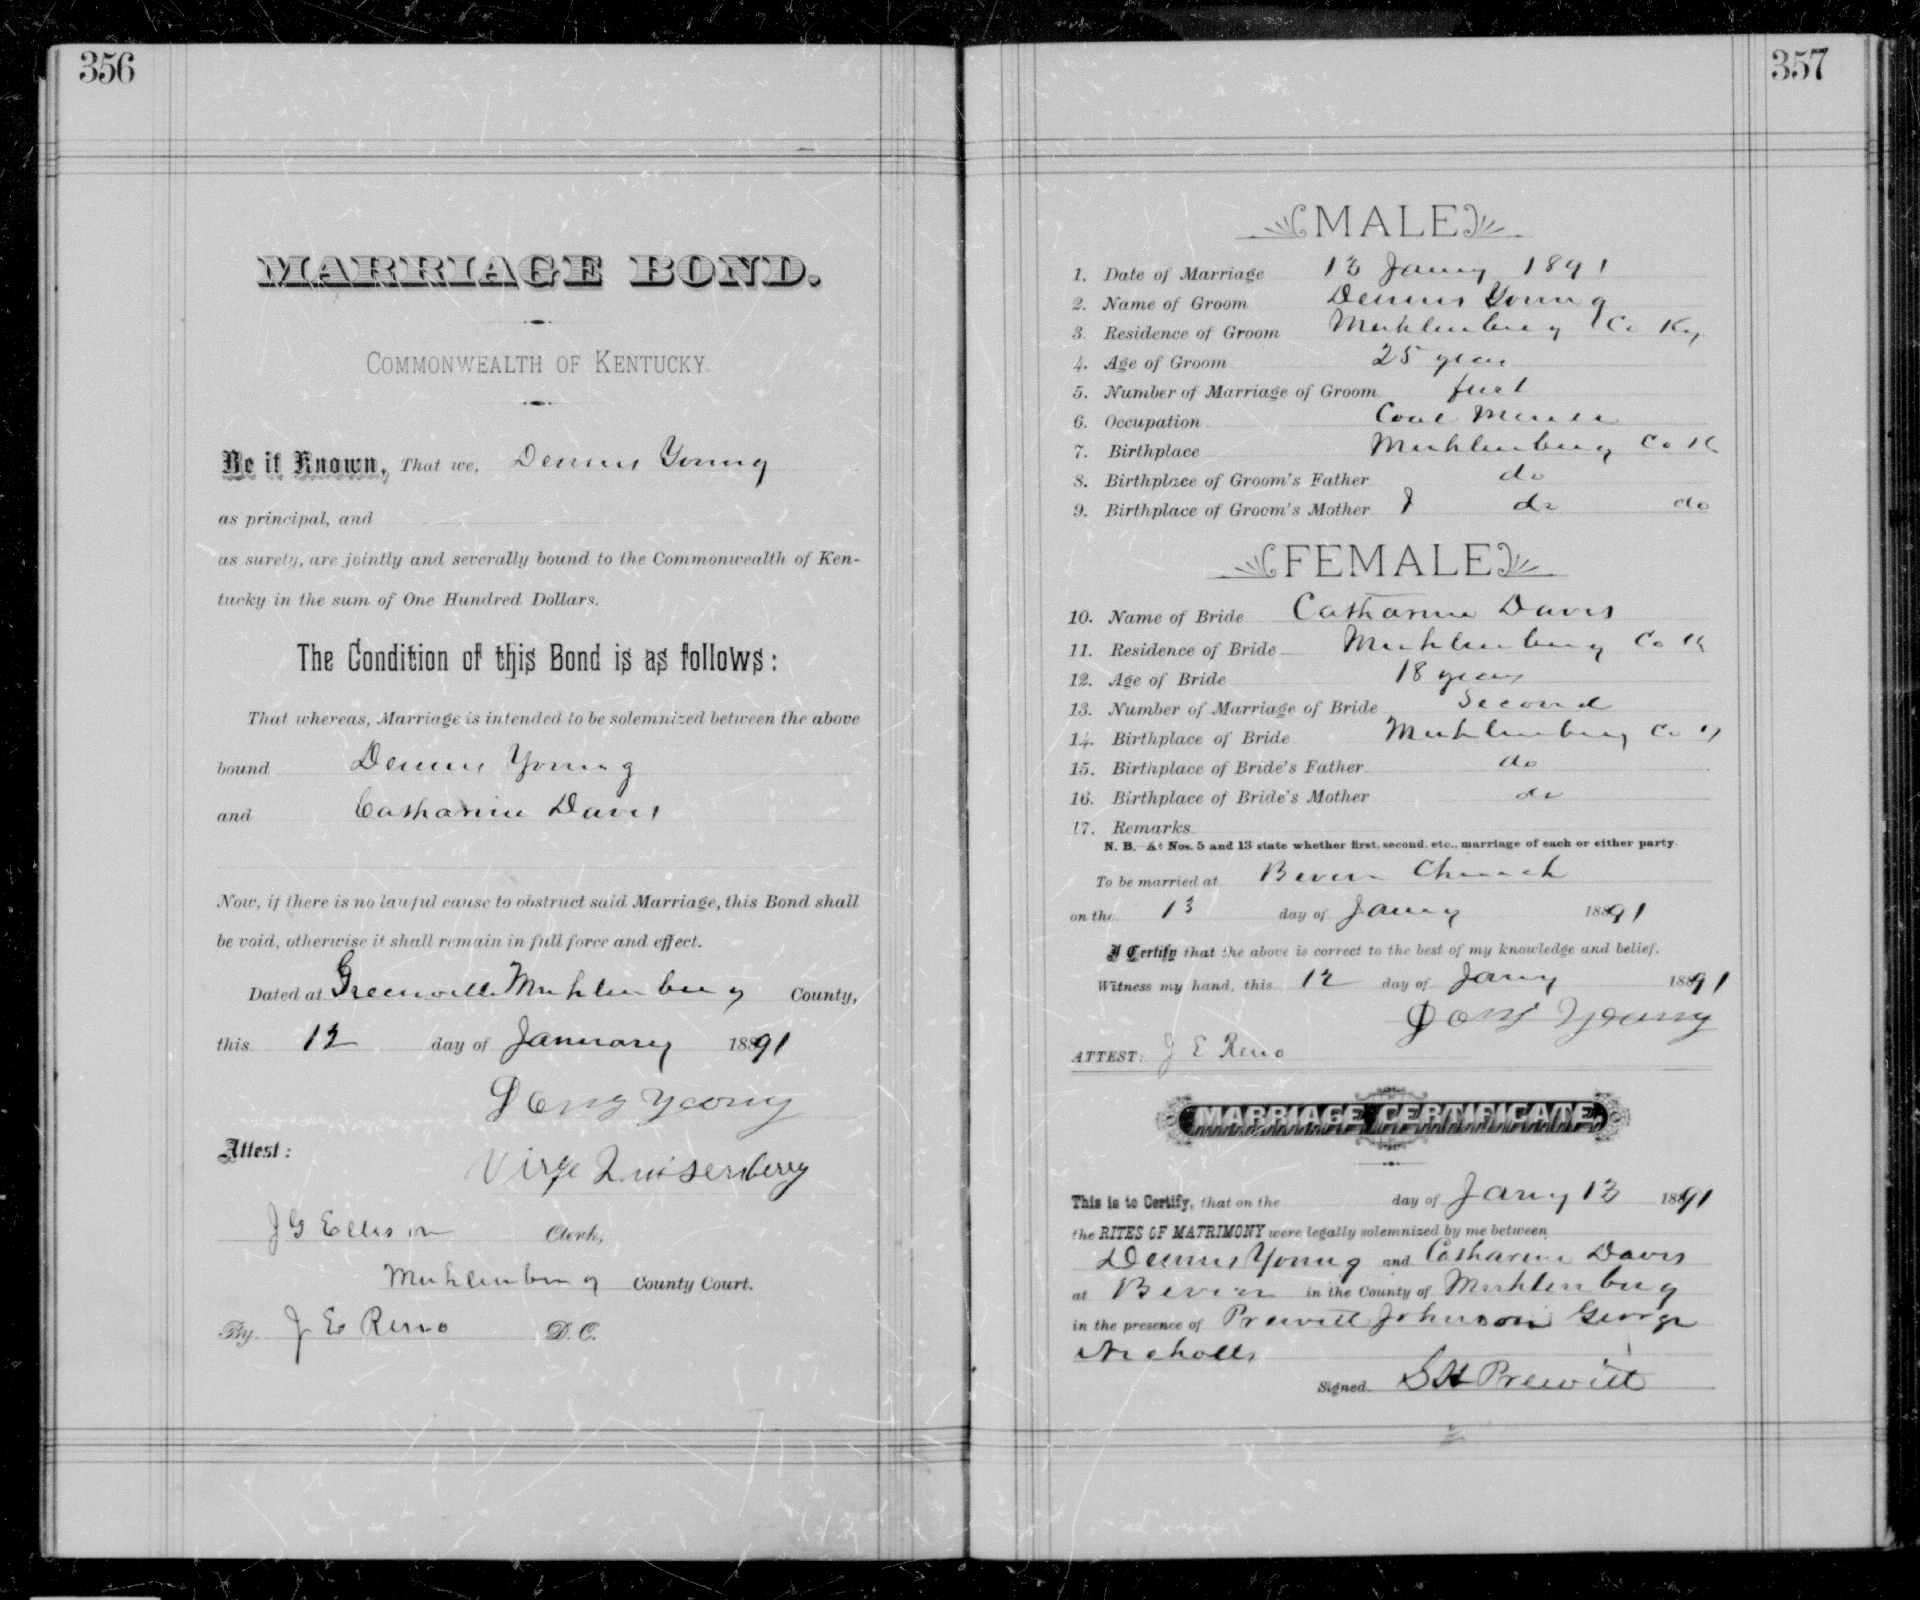 356
MARRIAGE BOND.
COMMONWEALTH OF KENTUCKY.
Be it Known, That we, Dennis Young
as principal, and
as surety, are jointly and severally bound to the Commonwealth of Ken-
tucky in the sum of One Hundred Dollars.
The Condition of this Bond is as follows:
That whereas, Marriage is intended to be solemnized between the above
bound Dennis Young
and Catharine Davis
Now, if there is no lawful cause to obstruct said Marriage, this Bond shall
be void, otherwise it shall remain in full force and effect.
Dated at Greenville Muhlenberg County,
this 12 day of January 1891
Young
Attest:
Virge Quisenberry
J G Ellison Clerk,
Muhlenberg County Court.
By J E Reno D. C.
357
MALE
1. Date of Marriage 13 Jany 1891
2. Name of Groom Dennis Young
3. Residence of Groom Muhlenberg Co Ky
4. Age of Groom 25 years
5. Number of Marriage of Groom first
6. Occupation Coal Miner
7. Birthplace Muhlenberg Co K
8. Birthplace of Groom's Father do
9. Birthplace of Groom's Mother do do
FEMALE
10. Name of Bride Catharine Davis
11. Residence of Bride Muhlenberg Co K
12. Age of Bride 18 years
13. Number of Marriage of Bride Second
14. Birthplace of Bride Muhlenberg Co Ky
15. Birthplace of Bride's Father do
16. Birthplace of Bride's Mother do
17. Remarks
N. B.—At Nos. 5 and 13 state whether first, second, etc., marriage of each or either party
To be married at Bevier Church
on the 13 day of Jany 1891
I Certify that the above is correct to the best of my knowledge and belief.
Witness my hand, this 12 day of Jany 1891
Young
ATTEST: J E Reno
MARRIAGE CERTIFICATE.
This is to Certify, that on the day of Jany 13 1891
the RITES OF MATRIMONY were legally solemnized by me between
Dennis Young and Catharine Davis
at Bevier in the County of Muhlenberg
in the presence of Prewitt Johnson George
Nicholls
Signed S H Prewitt